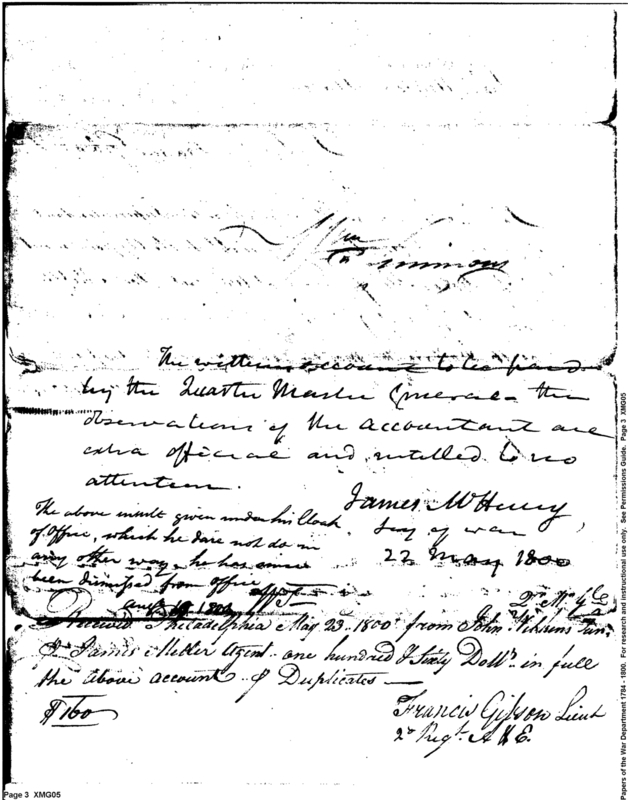 Wm Simmons
The within account to be paid
by the Quarter Master General - the
observations of the accountant are
extra official and intitled to no
attention.
James McHenry
Secy of war
22 May 1800
The above insult given under his Cloak
of Office, which he dare not do in
any other way, he has since
been dismissed from office
Qr. Mr. Gl.
Received Philadelphia May 23d. 1800 from John Wilkins Jun.
James Miller Agent one hundred & Sixty Dolls. in full
the above account Duplicates —
$160
Francis Gibson Lieut
2d Regt. A & E.
Page 3 XMG05
Papers of the War Department 1784 - 1800. For research and instructional use only. See Permissions Guide. Page 3 XMG05